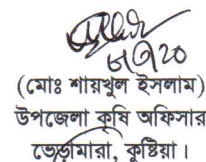 (মোঃ শায়খুল ইসলাম)
উপজেলা কৃষি অফিসার
ভেড়ামারা, কুষ্টিয়া।